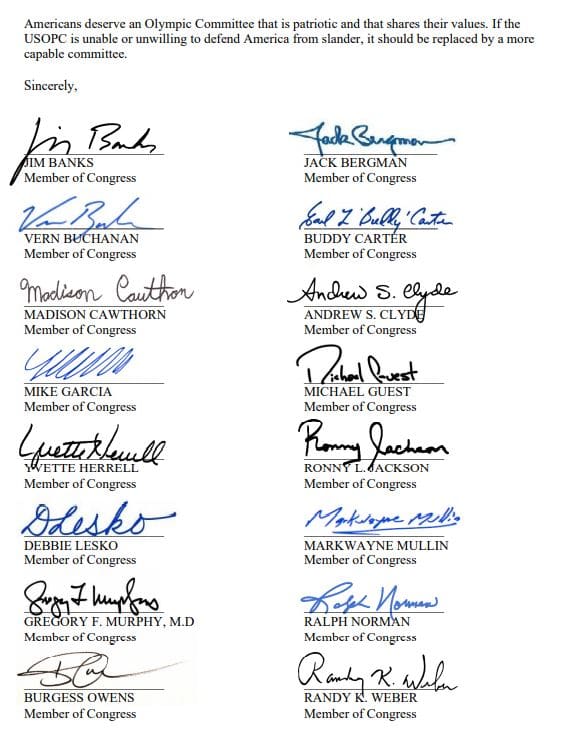 Americans deserve an Olympic Committee that is patriotic and that shares their values. If the
USOPC is unable or unwilling to defend America from slander, it should be replaced by a more
capable committee.
Sincerely,
Jim Banks
JIM BANKS
Member of Congress
Jack Bergman
JACK BERGMAN
Member of Congress
VERN BUCHANAN
Member of Congress
Earl L "Buddy" Carter
BUDDY CARTER
Member of Congress
Madison Cawthorn
MADISON CAWTHORN
Member of Congress
Andrew S. Clyde
ANDREW S. CLYDE
Member of Congress
MIKE GARCIA
Member of Congress
Michael Guest
MICHAEL GUEST
Member of Congress
Yvette Herrell
YVETTE HERRELL
Member of Congress
Ronny Jackson
RONNY L. JACKSON
Member of Congress
DLesko
DEBBIE LESKO
Member of Congress
Markwayne Mullin
MARKWAYNE MULLIN
Member of Congress
GREGORY F. MURPHY, M.D
Member of Congress
Ralph Norman
RALPH NORMAN
Member of Congress
BURGESS OWENS
Member of Congress
Randy K. Weber
RANDY K. WEBER
Member of Congress